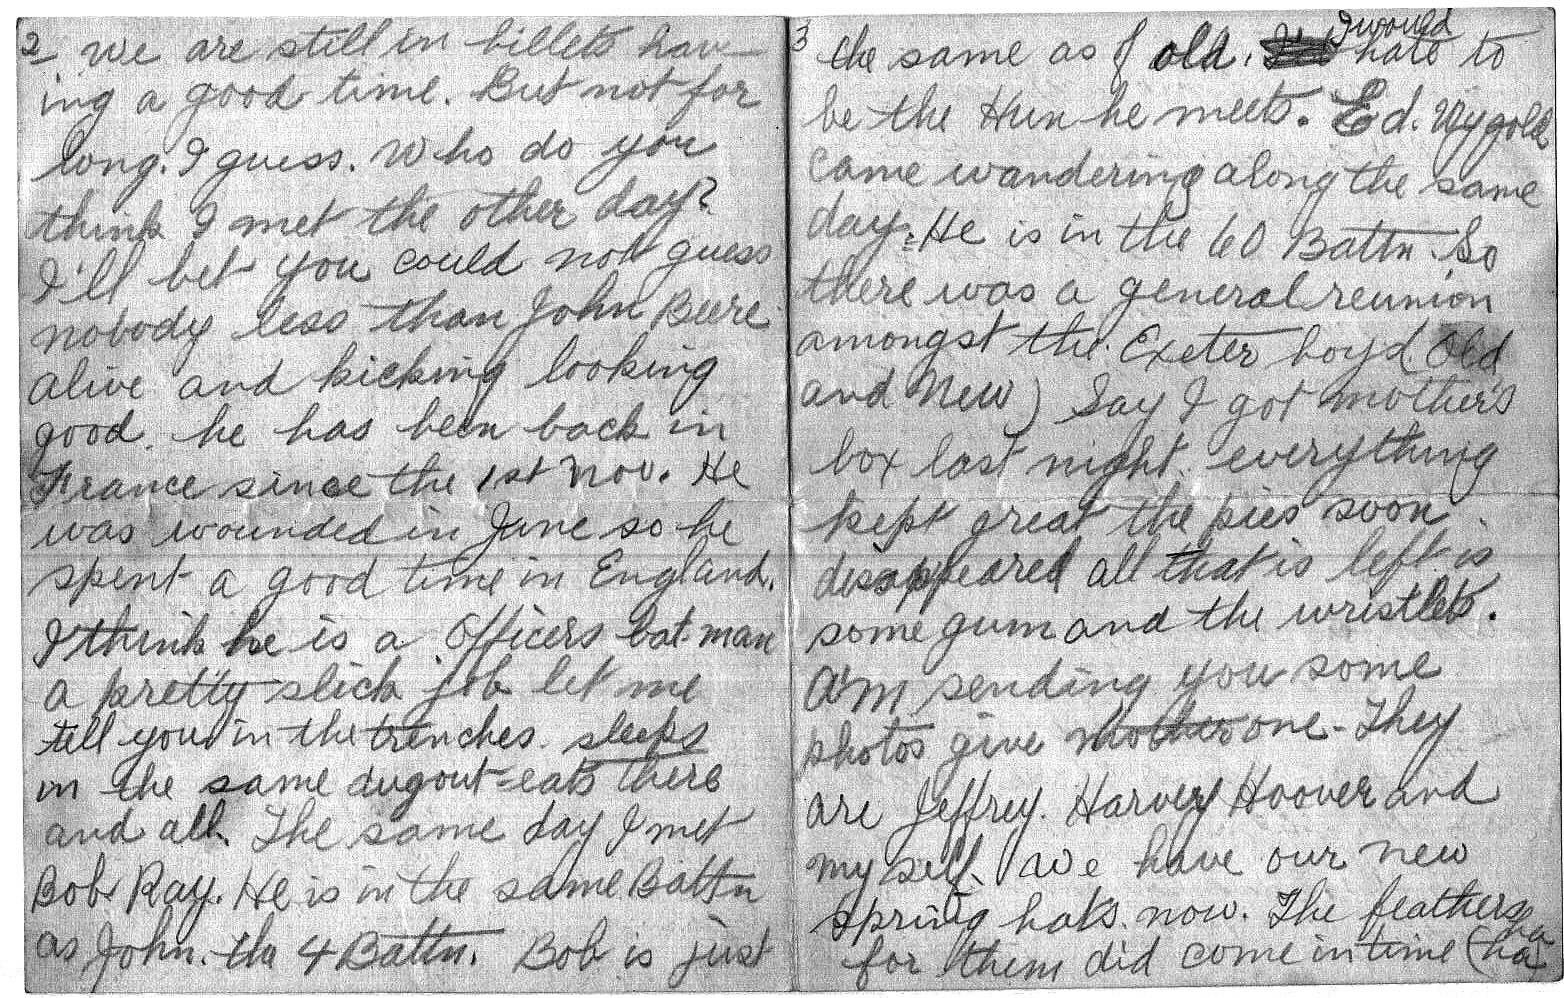 2 We are still in billets hav-
ing a good time. But not for
long. I guess. Who do you
think I met the other day?
I'll bet you could not guess
nobody less than John Beere
alive and kicking looking
good. he has been back in
France since the 1st Nov. He
was wounded in June so he
spent a good time in England.
I think he is a Officers bat-man
a pretty slick job let me
tell you in the trenches. sleeps
in the same dugout-eats there
and all. The same day I met
Bob Ray. He is in the same Battn
as John. the 4 Battn. Bob is just
3 the same as of old. I would hate to
be the Hun he meets. Ed. Wygold
came wandering along the same
day. He is in the 60 Battn. So
there was a general reunion
amongst the Exeter boyd (Old
and New) Say I got mother's
box last night. everything
kept great the pies soon
disappeared all that is left is
some gum and the wristlets.
am sending you some
photos give mother one - They
are Jeffrey. Harvey Hoover and
myself. We have our new
spring hats now. The feathers
for them did come in time (ha ha